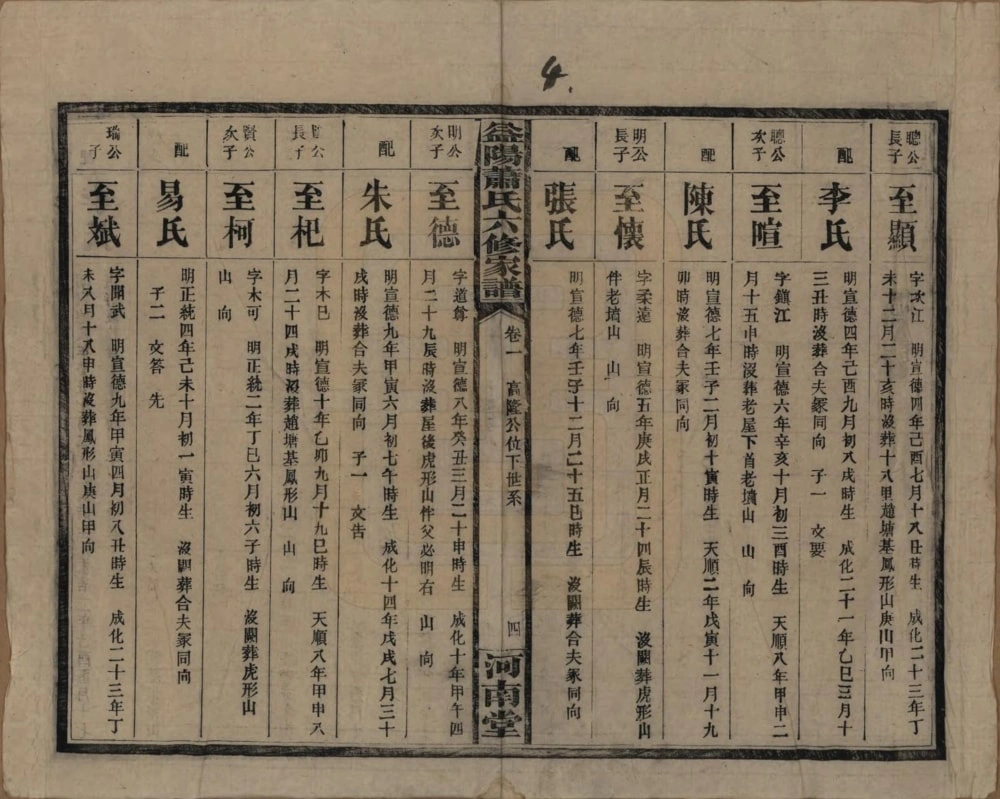 4.
聰公長子
至顯
字次江 明宣德四年己酉七月十八丑時生 成化二十三年丁
未十二月二十亥時沒葬十八里趙塘基鳳形山庚山甲向
配
李氏
明宣德四年己酉九月初八戌時生 成化二十一年乙巳三月十
三丑時沒葬合夫冢同向 子一 文要
聰公次子
至暄
字鎮江 明宣德六年辛亥十月初三酉時生 天順八年甲申二
月十五申時沒葬老屋下首老墳山 山 向
配
陳氏
明宣德七年壬子二月初十寅時生 天順二年戊寅十一月十九
卯時沒葬合夫冢同向
明公長子
至懷
字柔遠 明宣德五年庚戌正月二十四辰時生 沒闕葬虎形山
件老墳山 山 向
配
張氏
明宣德七年壬子十二月二十五巳時生 沒闕葬合夫冢同向
益陽蕭氏六修家譜
卷一 高隆公位下世系
四
河南堂
明公次子
至德
字道尊 明宣德八年癸丑三月二十申時生 成化十年甲午四
月二十九辰時沒葬屋後虎形山件父必明右 山 向
配
朱氏
明宣德九年甲寅六月初七午時生 成化十四年戊戌七月三十
戌時沒葬合夫冢同向 子一 文告
公長子
至杞
字木巳 明宣德十年乙卯九月十九巳時生 天順八年甲申八
月二十四戌時沒葬趙塘基鳳形山 山 向
賢公次子
至柯
字木可 明正統二年丁巳六月初六子時生 沒闕葬虎形山
山 向
配
易氏
明正統四年己未十月初一寅時生 沒闕葬合夫冢同向
子二 文答 先
瑜公子
至斌
字開武 明宣德九年甲寅四月初八丑時生 成化二十三年丁
未八月十八申時沒葬鳳形山庚山甲向